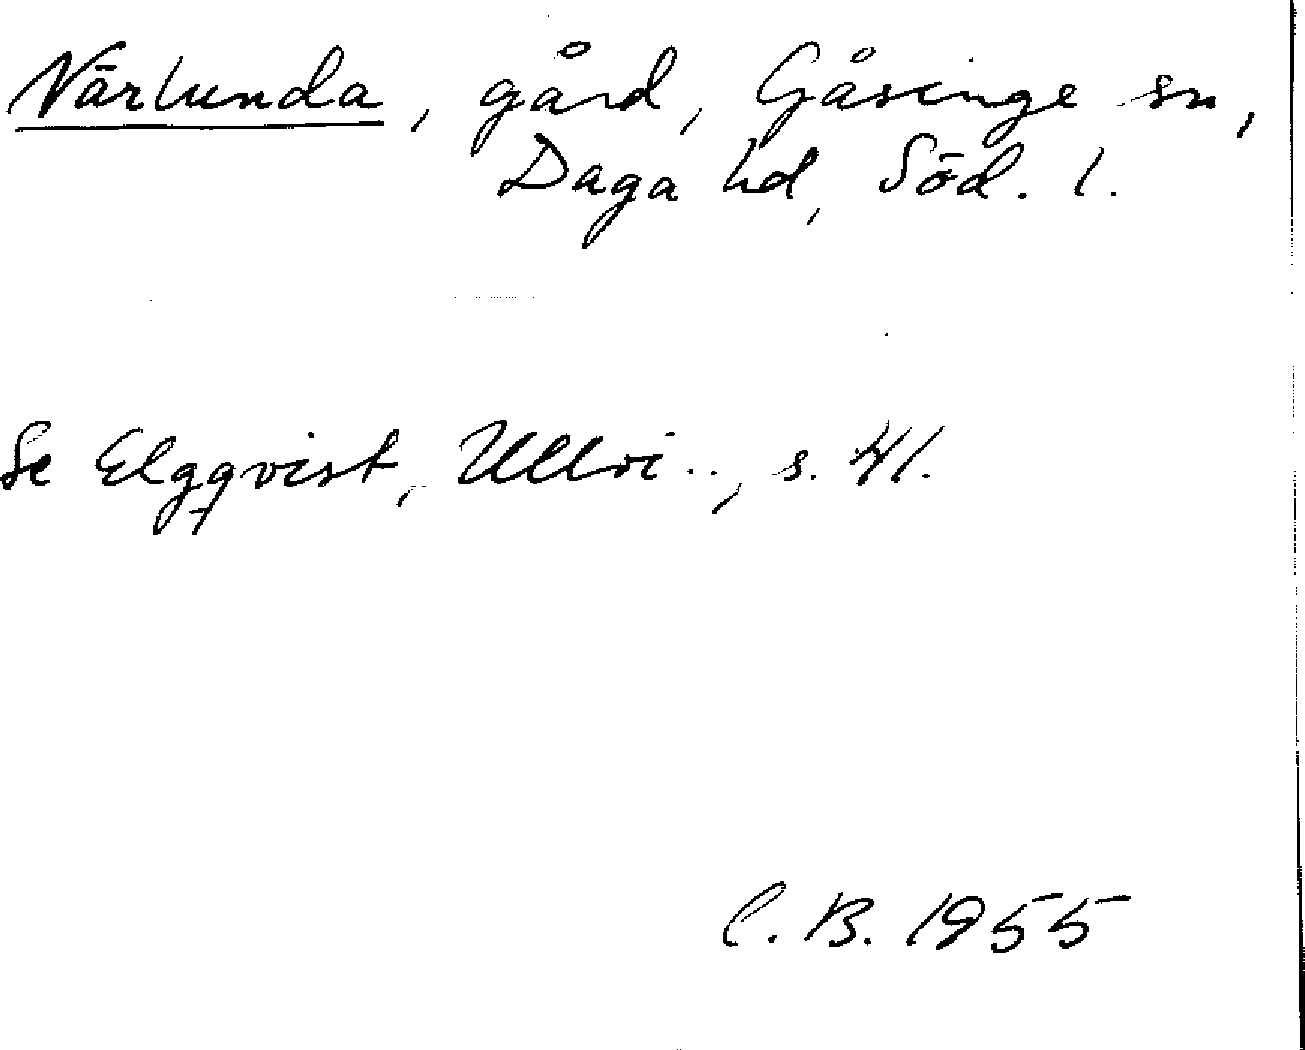 Närlunda, gård, Gåsinge sn,
Daga hd, Söd. l.
Se Elgqvist, Ullvi.., s. 41.
C. B. 1955